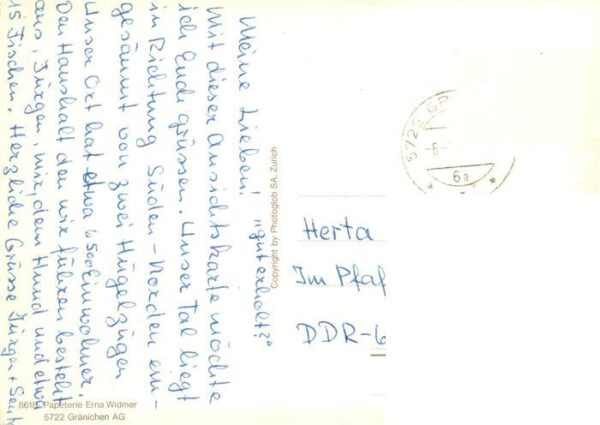 Meine Lieben! "gut erholt?"
Mit dieser Ansichtskarte möchte
ich Euch grüssen. Unser Tal liegt
in Richtung Süden-Norden ein-
gesäumt von zwei Hügelzügen
Unser Ort hat etwa Einwohner.
Den Haushalt den wir führen besteht
aus, Jürgen, mir, dem Hund und etwa
15 Fischen. Herzliche Grüsse Jürgen +
Copyright by Photoglob SA, Zurich
5722
6a
Herta
Im Pfaf
DDR-6
8618 Papeterie Erna Widmer
5722 Gränichen AG